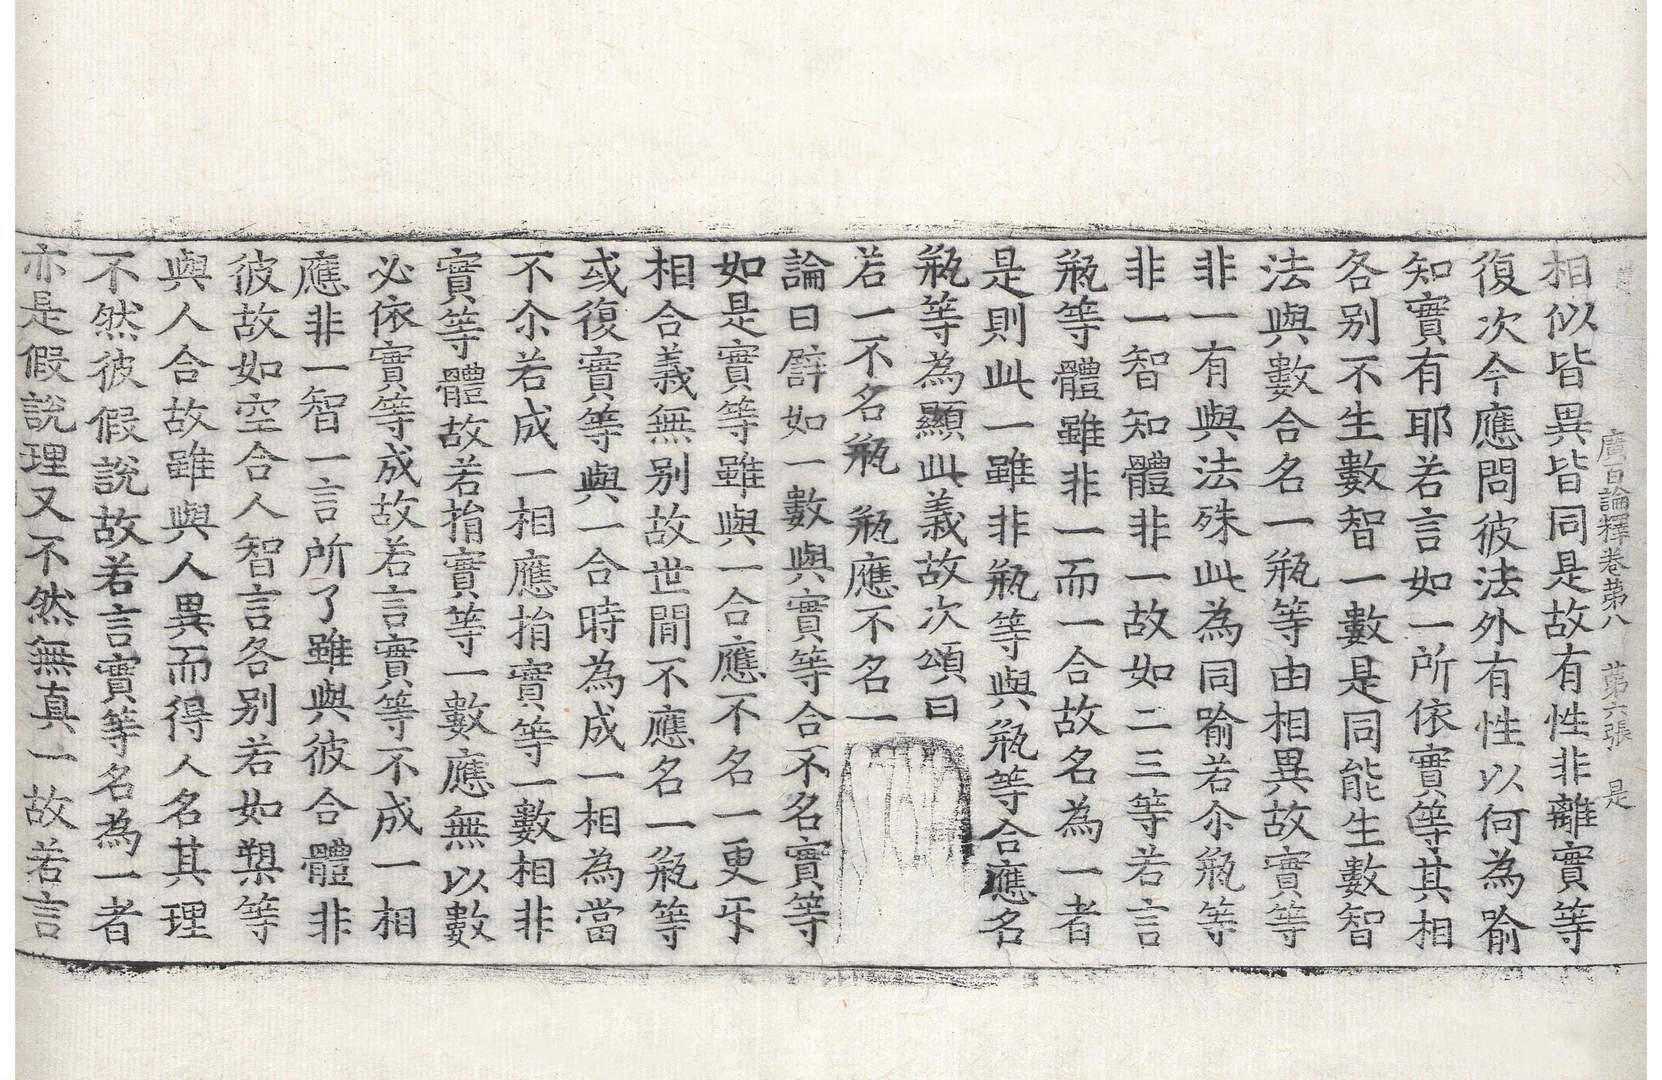 廣百論釋卷第八　第六張　是
相似皆異皆同是故有性非離實等
復次今應問彼法外有性以何為喻
知實有耶若言如一所依實等其相
各別不生數智一數是同能生數智
法與數合名一瓶等由相異故實等
非一有與法殊此為同喻若尒瓶等
非一智知體非一故如二三等若言
瓶等體雖非一而一合故名為一者
是則此一雖非瓶等與瓶等合應名
瓶等為顯此義故次頌曰
若一不名瓶　瓶應不名一
論曰譬如一數與實等合不名實等
如是實等雖與一合應不名一更互
相合義無別故世間不應名一瓶等
或復實等與一合時為成一相為當
不尒若成一相應揹實等一數相非
實等體故若揹實等一數應無以數
必依實等成故若言實等不成一相
應非一智一言所了雖與彼合體非
彼故如空合人智言各別若如槊等
與人合故雖與人異而得人名其理
不然彼假說故若言實等名為一者
亦是假說理又不然無真一故若言